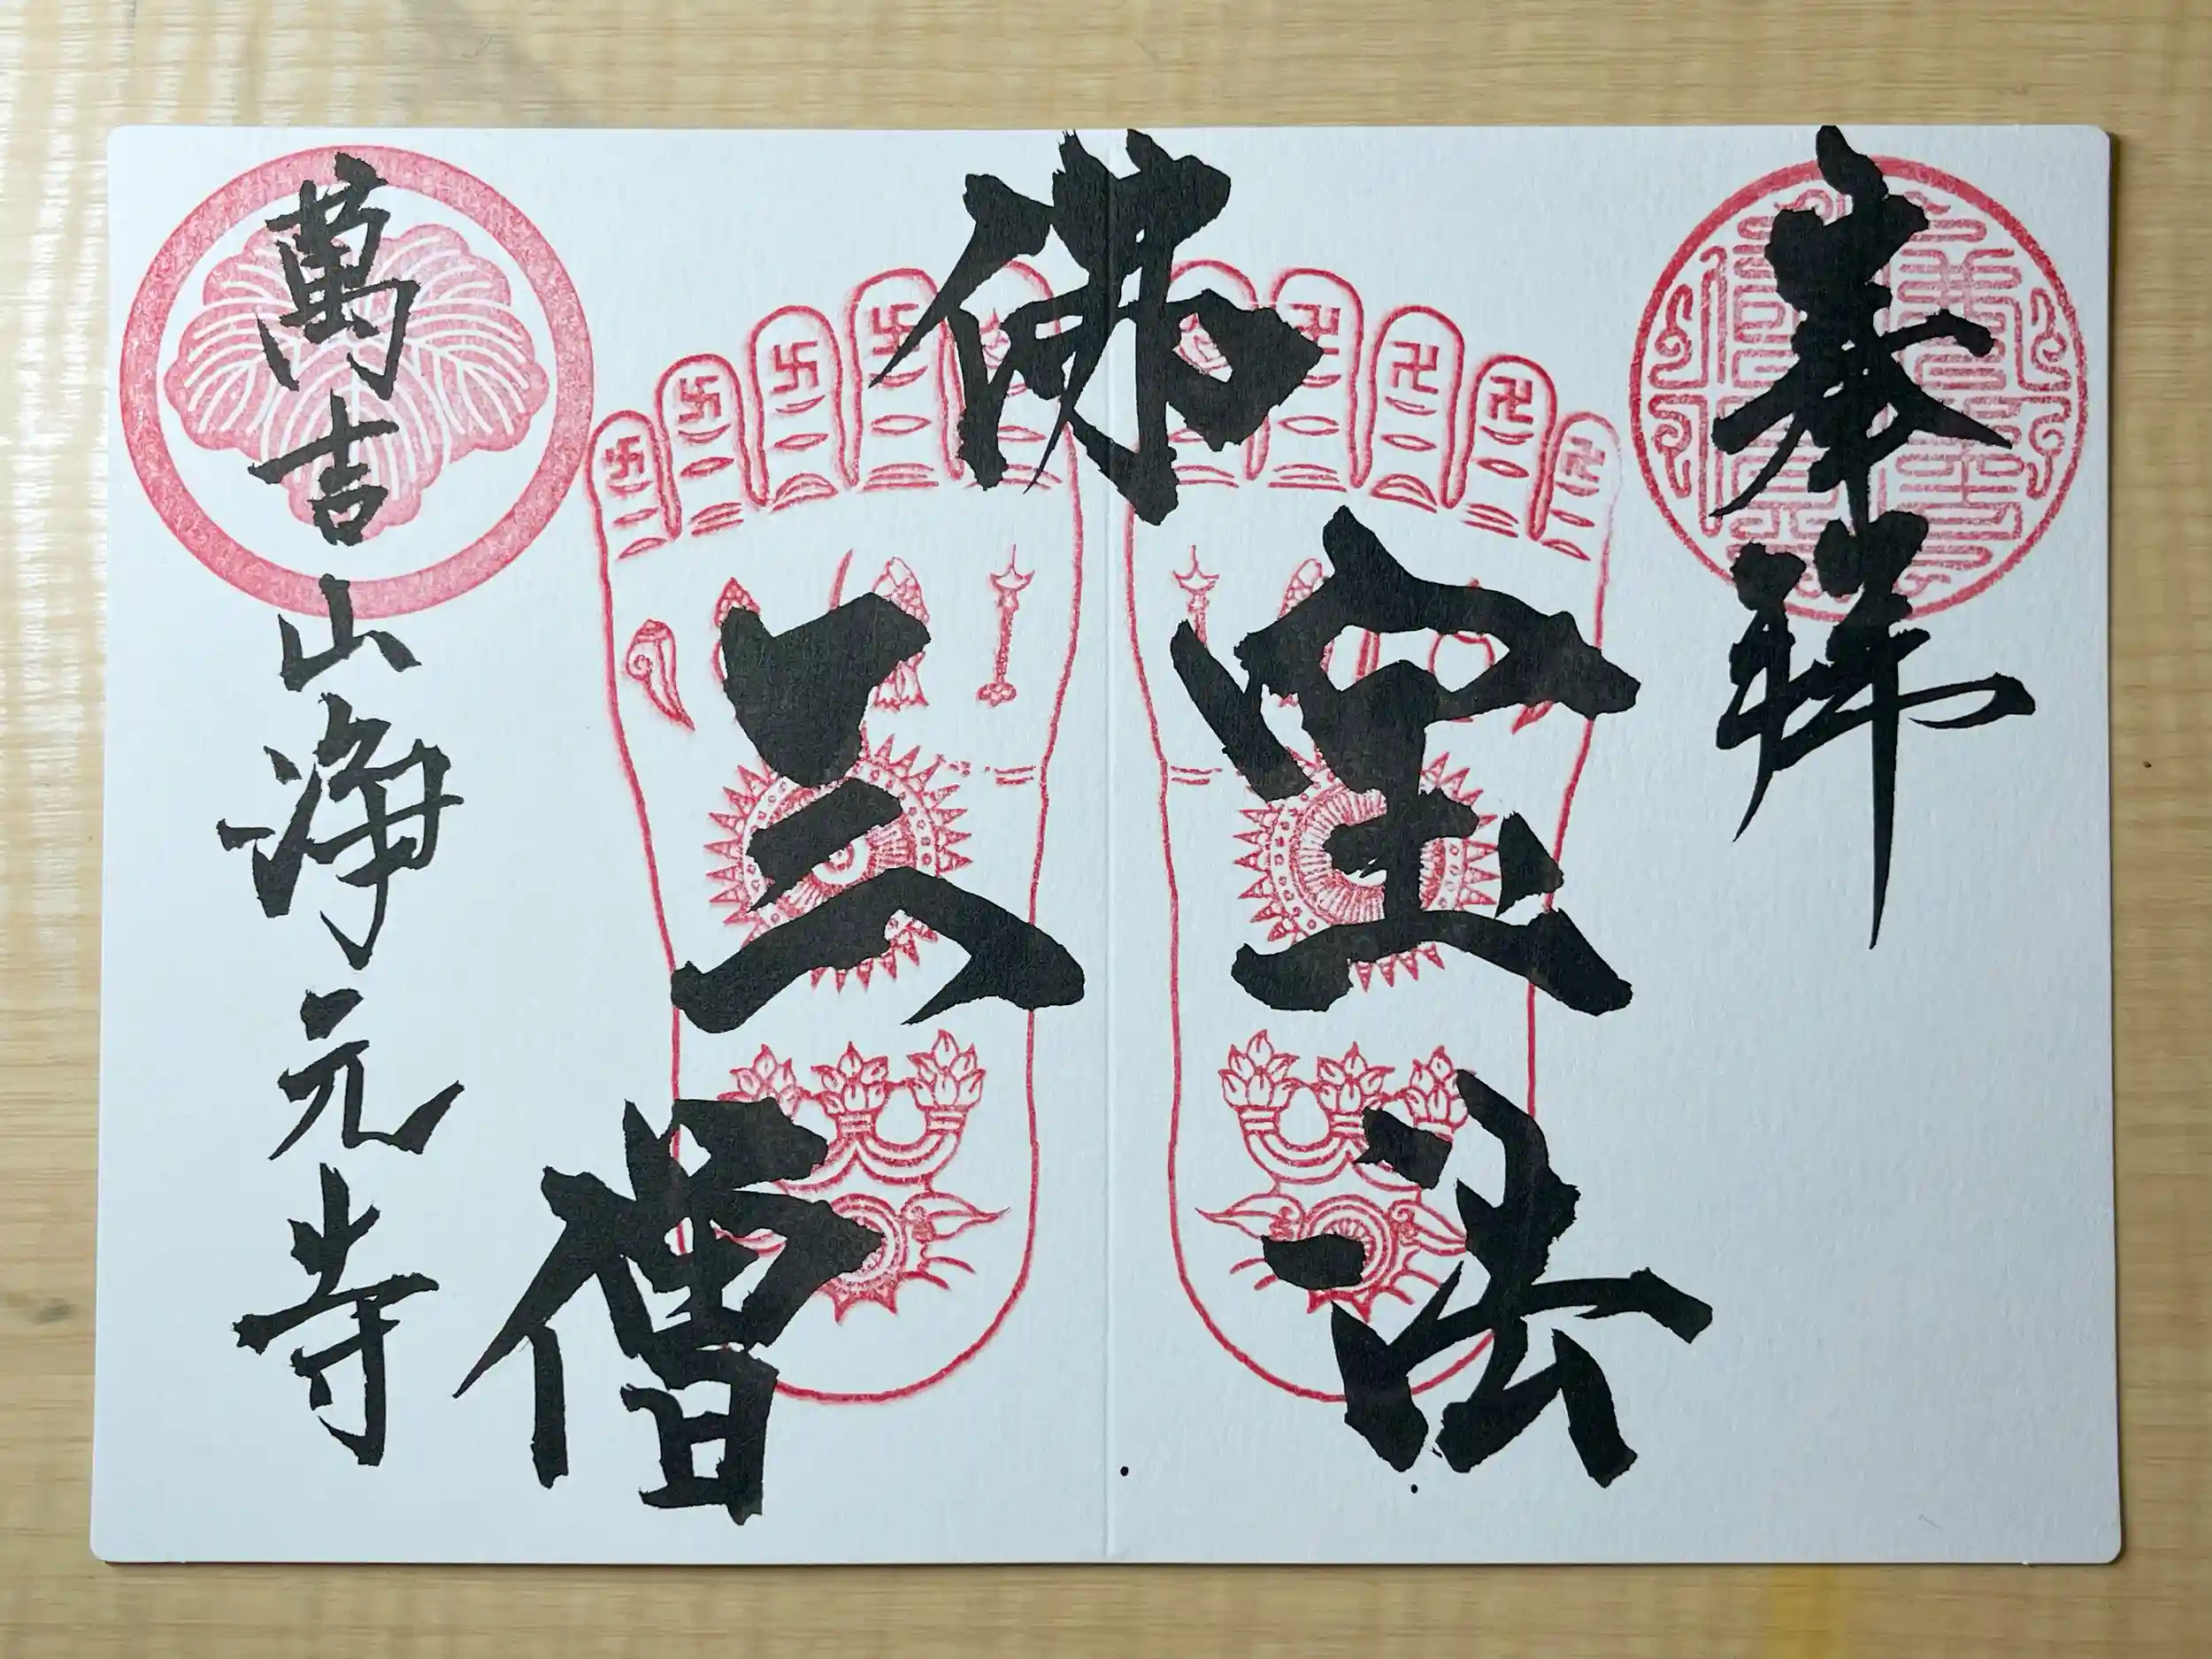 奉拝
佛
三宝
法
僧
萬吉山浄元寺